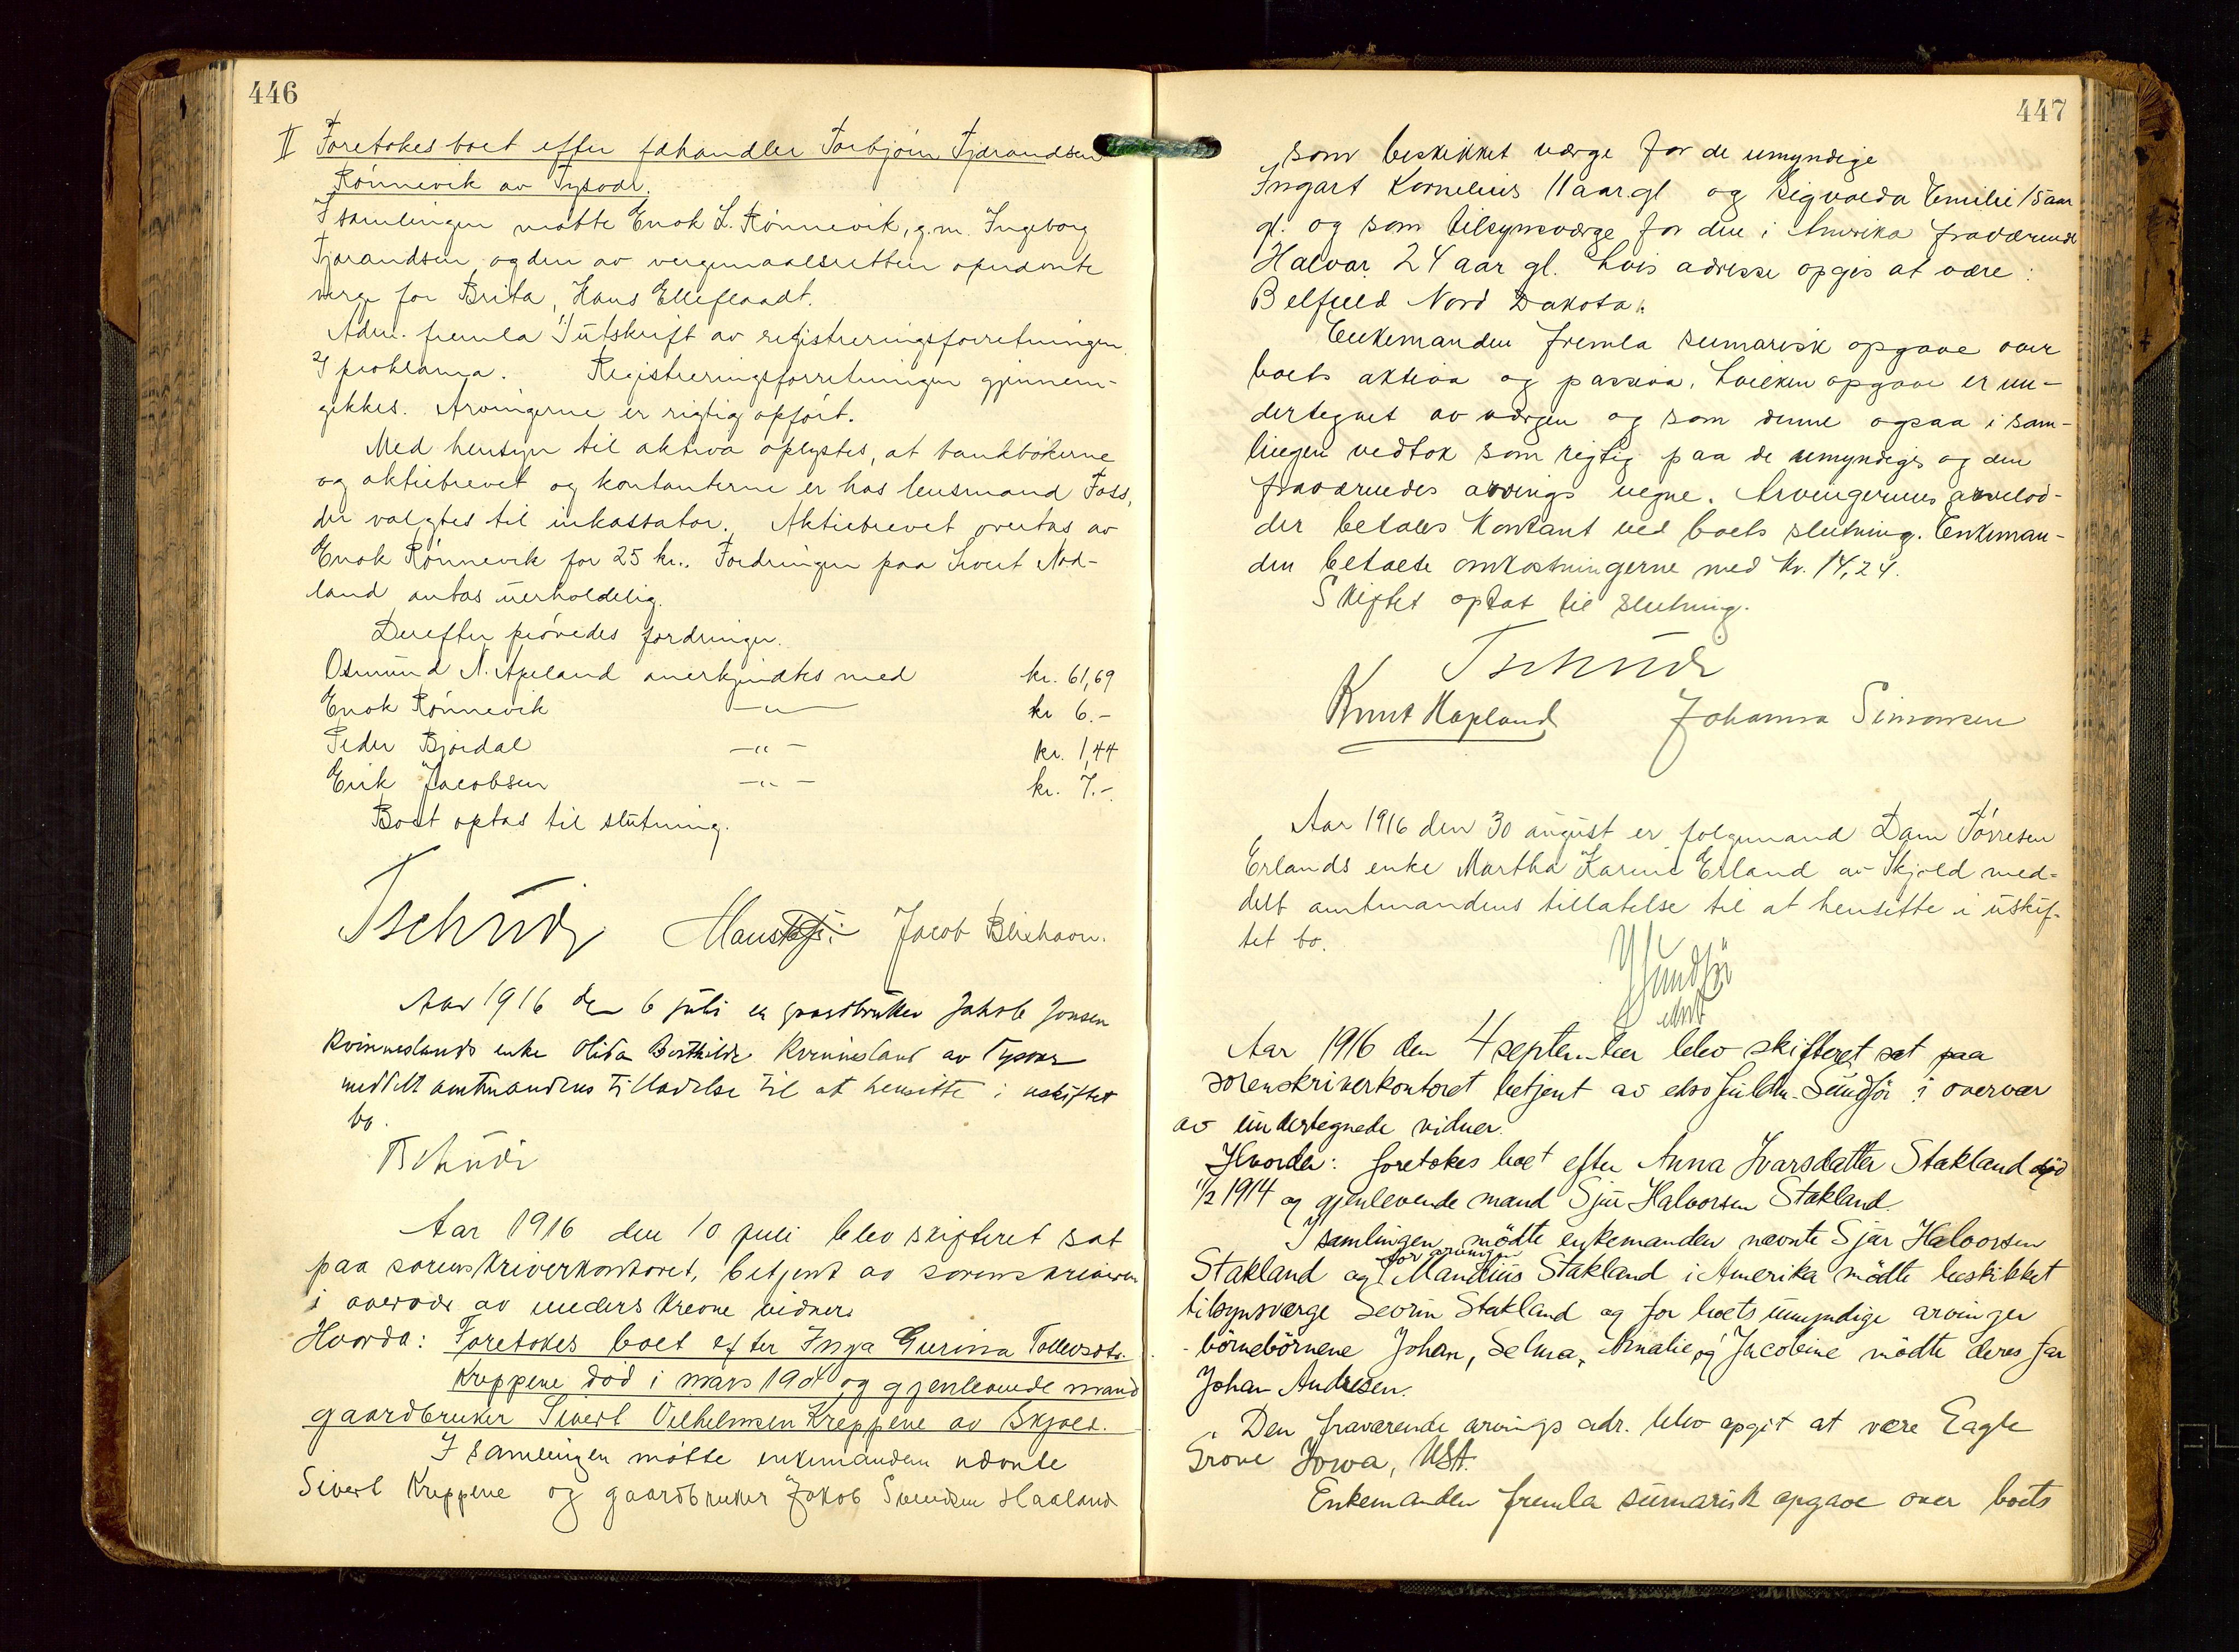 446
II Foretokes boet efter fæhandler Torbjörn Tjærandsen
Rönnevik av Tysvær.
I samlingen møtte Enok L. Rönnevik, g.m. Ingeborg
Tjærandsen og den av vergemaalsretten opnævnte
verge for Brita, Hans Elleflaadt.
Adm. fremla 1) utskrift av registreringsforretningen
2) proklama. Registreringsforretningen gjennem-
gikkes. Arvingerne er rigtig opført.
Med hensyn til aktiva oplystes, at bankbökerne
og aktiebrevet og kontanterne er hos lensmand Foss,
der valgtes til inkassator. Aktiebrevet overtas av
Enok Rönnevik for 25 kr.. Fordringen paa Sivert Nod-
land antas uerholdelig.
Derefter prövedes fordringer.
Osmund N. Apeland anerkjendtes med kr. 61,69
Enok Rönnevik —"— kr 6.-
Peder Bjordal —"— kr. 1,44
Erik Jacobsen —"— kr. 7.-
Boet optas til slutning.
Tschudi Jacob Blikhavn.
Aar 1916 den 6 juli er gaardbruker Jakob Jonsen
Kvinneslands enke Olida Berthilde Kvinnesland av Tysvær
meddelt amtmandens tilladelse til at hensitte i uskiftet
bo.
Tschudi
Aar 1916 den 10 juli blev skifteret sat
paa sorenskriverkontoret, betjent av sorenskriveren
i overvær av underskrevne vidner.
Hvorda: Foretokes boet efter Inga Gurina Tollevsdtr.
Kreppene död i mars 190 og gjenlevende mand
gaardbruker Sivert Vilhelmsen Kreppene av Skjold.
I samlingen møtte enkemanden nævnte
Sivert Kreppene og gaardbruker Jakob Svendsen Haaland
447
som beskikket værge for de umyndige
Ingart Kornelius 11 aar gl og Sigvalda Emilie 15 aar
gl. og som tilsynsværge for den i Amerika fraværende
Halvar 24 aar gl. hvis adresse opgis at være:
Belfield Nord Dakota.
Enkemanden fremla sumarisk opgave over
boets aktiva og passiva, hvilken opgave er un-
dertegnet av værgen og som denne ogsaa i sam-
lingen vedtok som rigtig paa de umyndiges og den
fraværendes arvings vegne. Arvingernes arvelod-
der betales kontant ved boets slutning. Enkeman-
den betalte omkostningerne med kr. 14,24.
Skiftet optat til slutning.
Tschudi
Knut Hapland Johanna Simonsen
Aar 1916 den 30 august er folgemand Dam Tórresen
Erlands enke Martha Karine Erland av Skjold med-
delt amtmandens tillatelse til at hensitte i uskif-
tet bo.
Sundför
edsv
Aar 1916 den 4 september blev skifteret sat paa
sorenskriverkontoret betjent av edsv fuldm. Sundför i overvær
av undertegnede vidner.
Hvorda: foretokes boet efter Anna Ivarsdatter Stakland död
1/2 1914 og gjenlevende mand Sjur Halvorsen Stakland.
I samlingen mödte enkemanden nævnte Sjur Halvorsen
for arvingen
Stakland og Mandius Stakland i Amerika mödte beskikket
tilsynsværge Sevrin Stakland og for boets umyndige arvinger
- börnebörnene Johan, Selma, Amalie og Jacobine mödte deres far
Johan Andresen.
Den fraværende arvings adr. blev opgit at være Eagle
Grove Jowa, USA.
Enkemanden fremla sumarisk opgave over boets